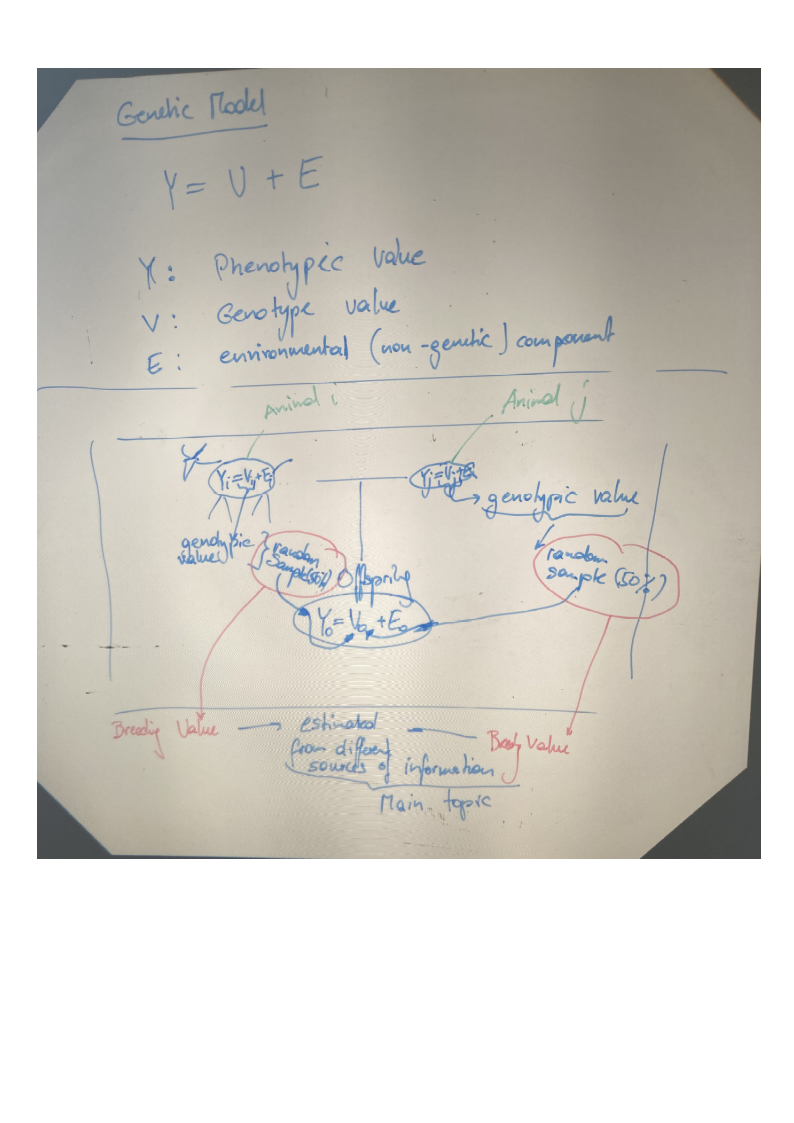 Genetic Model
Y = V + E
Y: Phenotypic value
V: Genotype value
E: environmental (non-genetic) component
Animal i
Animal j
Yi = Vi + Ei
Yj = Vj + Ej
genotypic value
genotypic
value
random
sample (50%)
random
sample (50%)
Offspring
Yo = Vo + Eo
Breeding Value
estimated
from different
sources of information
Value
Main topic